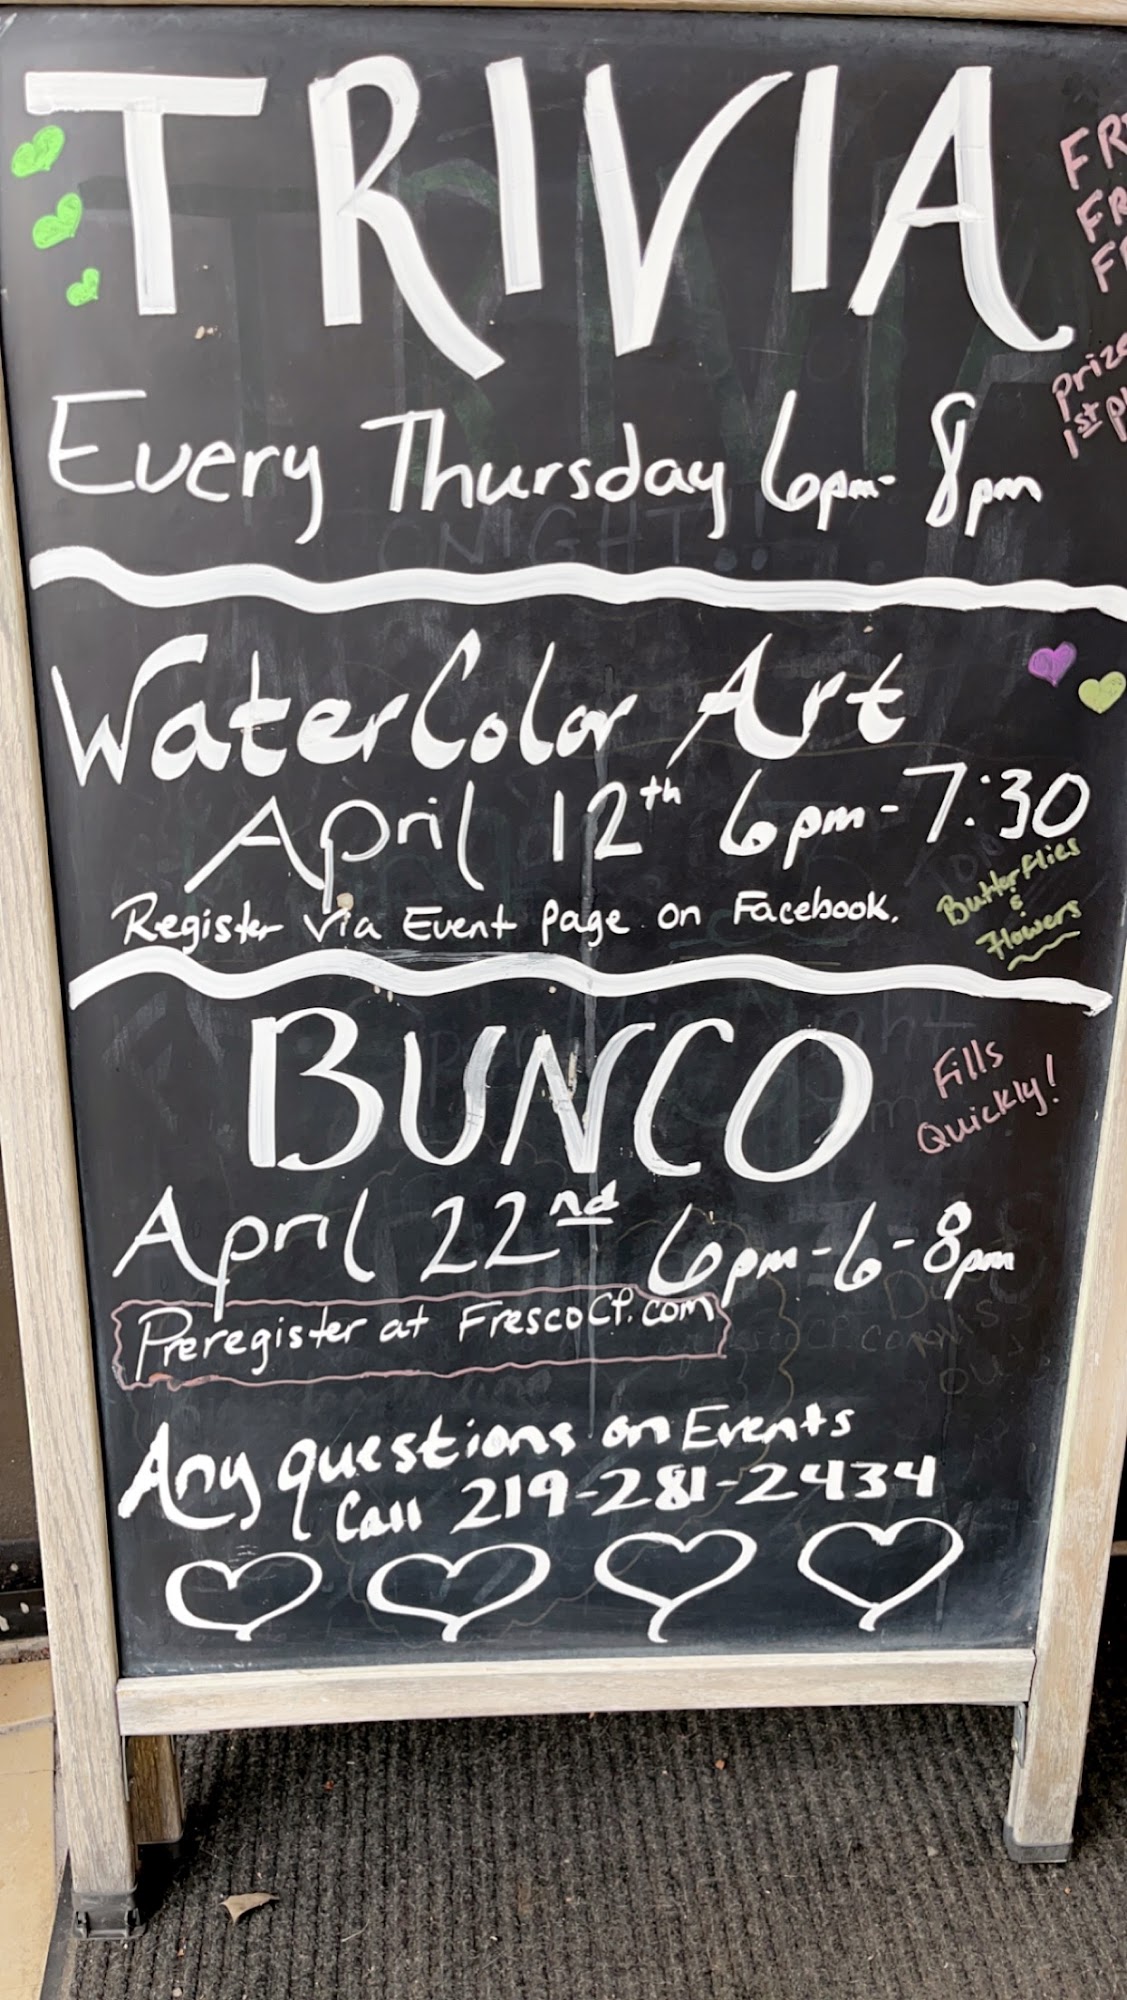 TRIVIA
Every Thursday 6pm-8pm
1st
WaterColor Art
April 12th 6pm-7:30
Register Via Event Page on Facebook.
Butterflies
&
Flowers
BUNCO
Fills
Quickly!
April 22nd 6pm-6-8pm
Preregister at FrescoCP.com
Any questions on Events
Call 219-281-2434